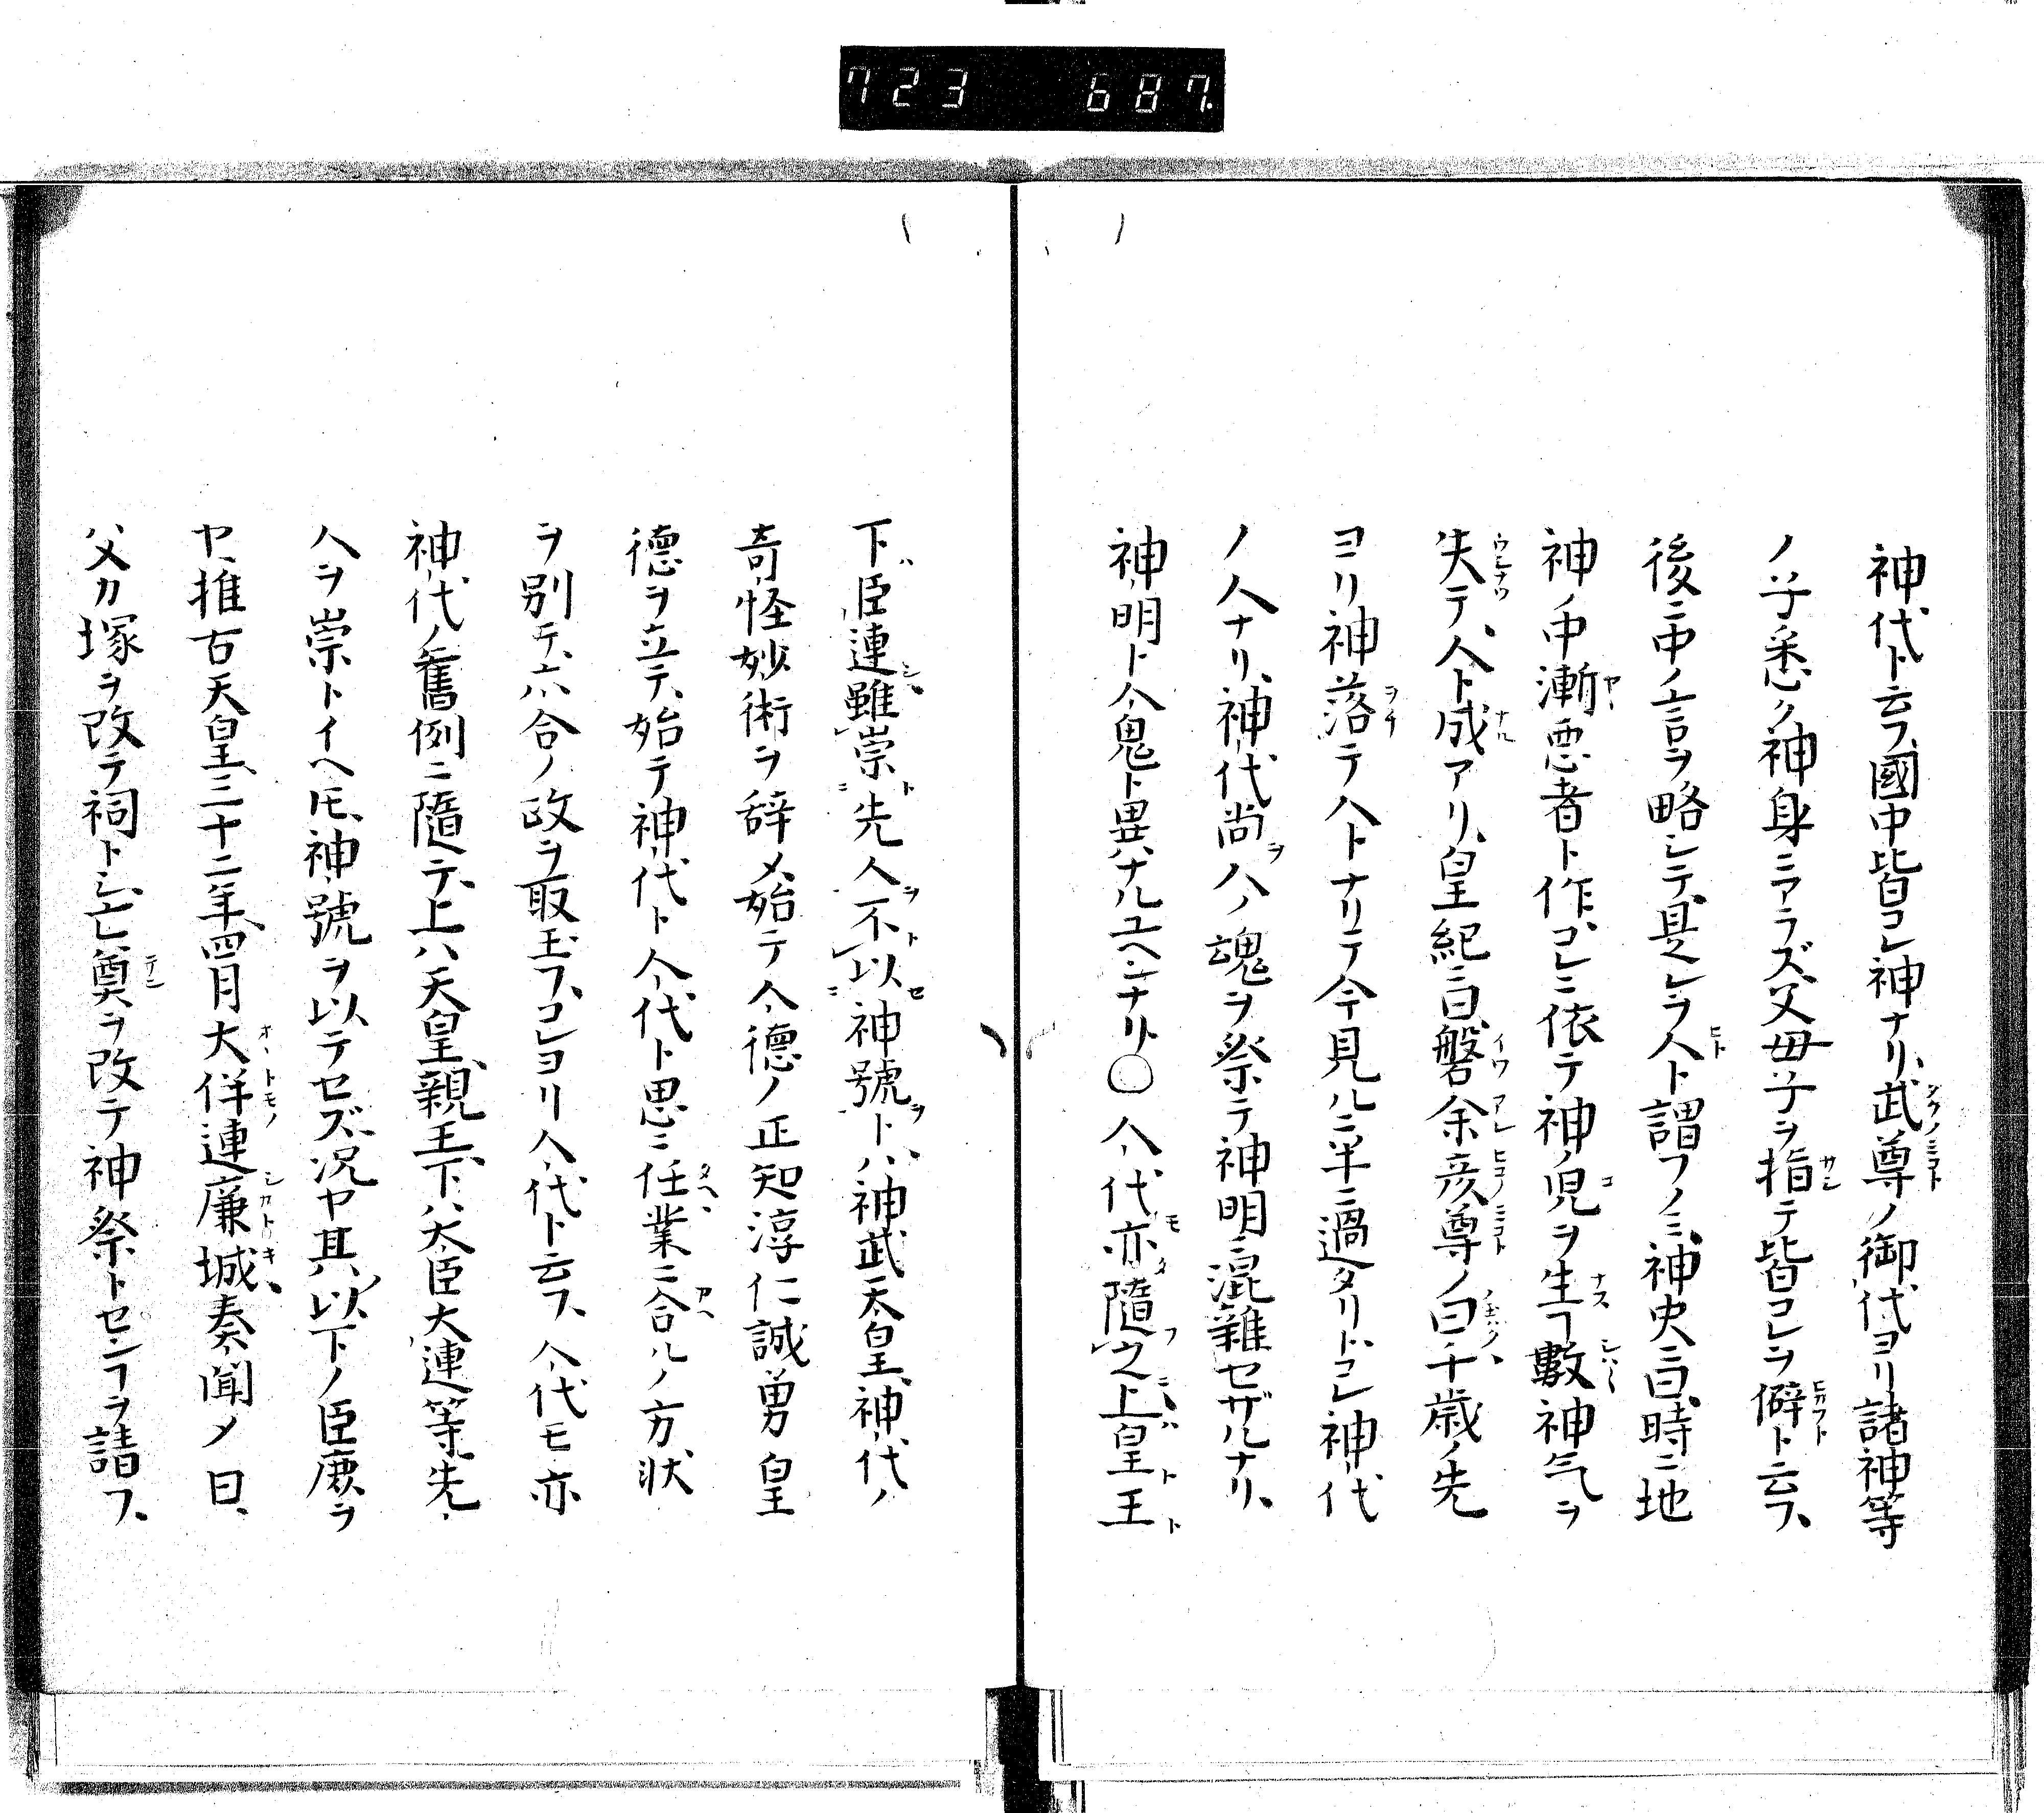 723 687.
神代ト云フ、國中皆コレ神ナリ、武尊ノ御代ヨリ諸神等
ノ子悉ク神身ニアラズ、父母子ヲ指テ皆コレヲ僻ト云フ、
後ニ中ノ言ヲ略シテ、是レヲ人ト謂フノミ、神史ニ曰、時ニ地
神ノ中漸悪者ト作、コレニ依テ神ノ児ヲ生ヿ數神气ヲ
失テ、人ト成アリ、皇紀ニ曰、磐余彦尊ノ曰、千歳ノ先
ヨリ神落テ人トナリテ今見ルニ半ニ過タリト、コレ神代
ノ人ナリ、神代尚ヲ人ノ魂ヲ祭テ神明ニ混雜セザルナリ、
神明ト人鬼ト異ナルユヘンナリ、○人代亦隨之上皇王
下臣連雖崇先人不以神號ト、神武天皇、神代ノ
奇怪妙術ヲ辞メ、始テ人德ノ正知淳仁誠勇皇
德ヲ立テ、始テ神代ト人代ト思ニ任業ニ合ルノ方状
ヲ別テ、六合ノ政ヲ取玉フ、コレヨリ人代ト云フ、人代モ亦
神代ノ舊例ニ隨テ、上ハ天皇、親王、下ハ大臣大連等、先
人ヲ崇トイヘ𪜈、神號ヲ以テセズ、况ヤ其以下ノ臣庶ヲ
ヤ、推古天皇三十二年、四月大伴連廉城奏聞メ曰、
父カ塚ヲ改テ祠トシ、亡奠ヲ改テ神祭トセンヿヲ請フ、